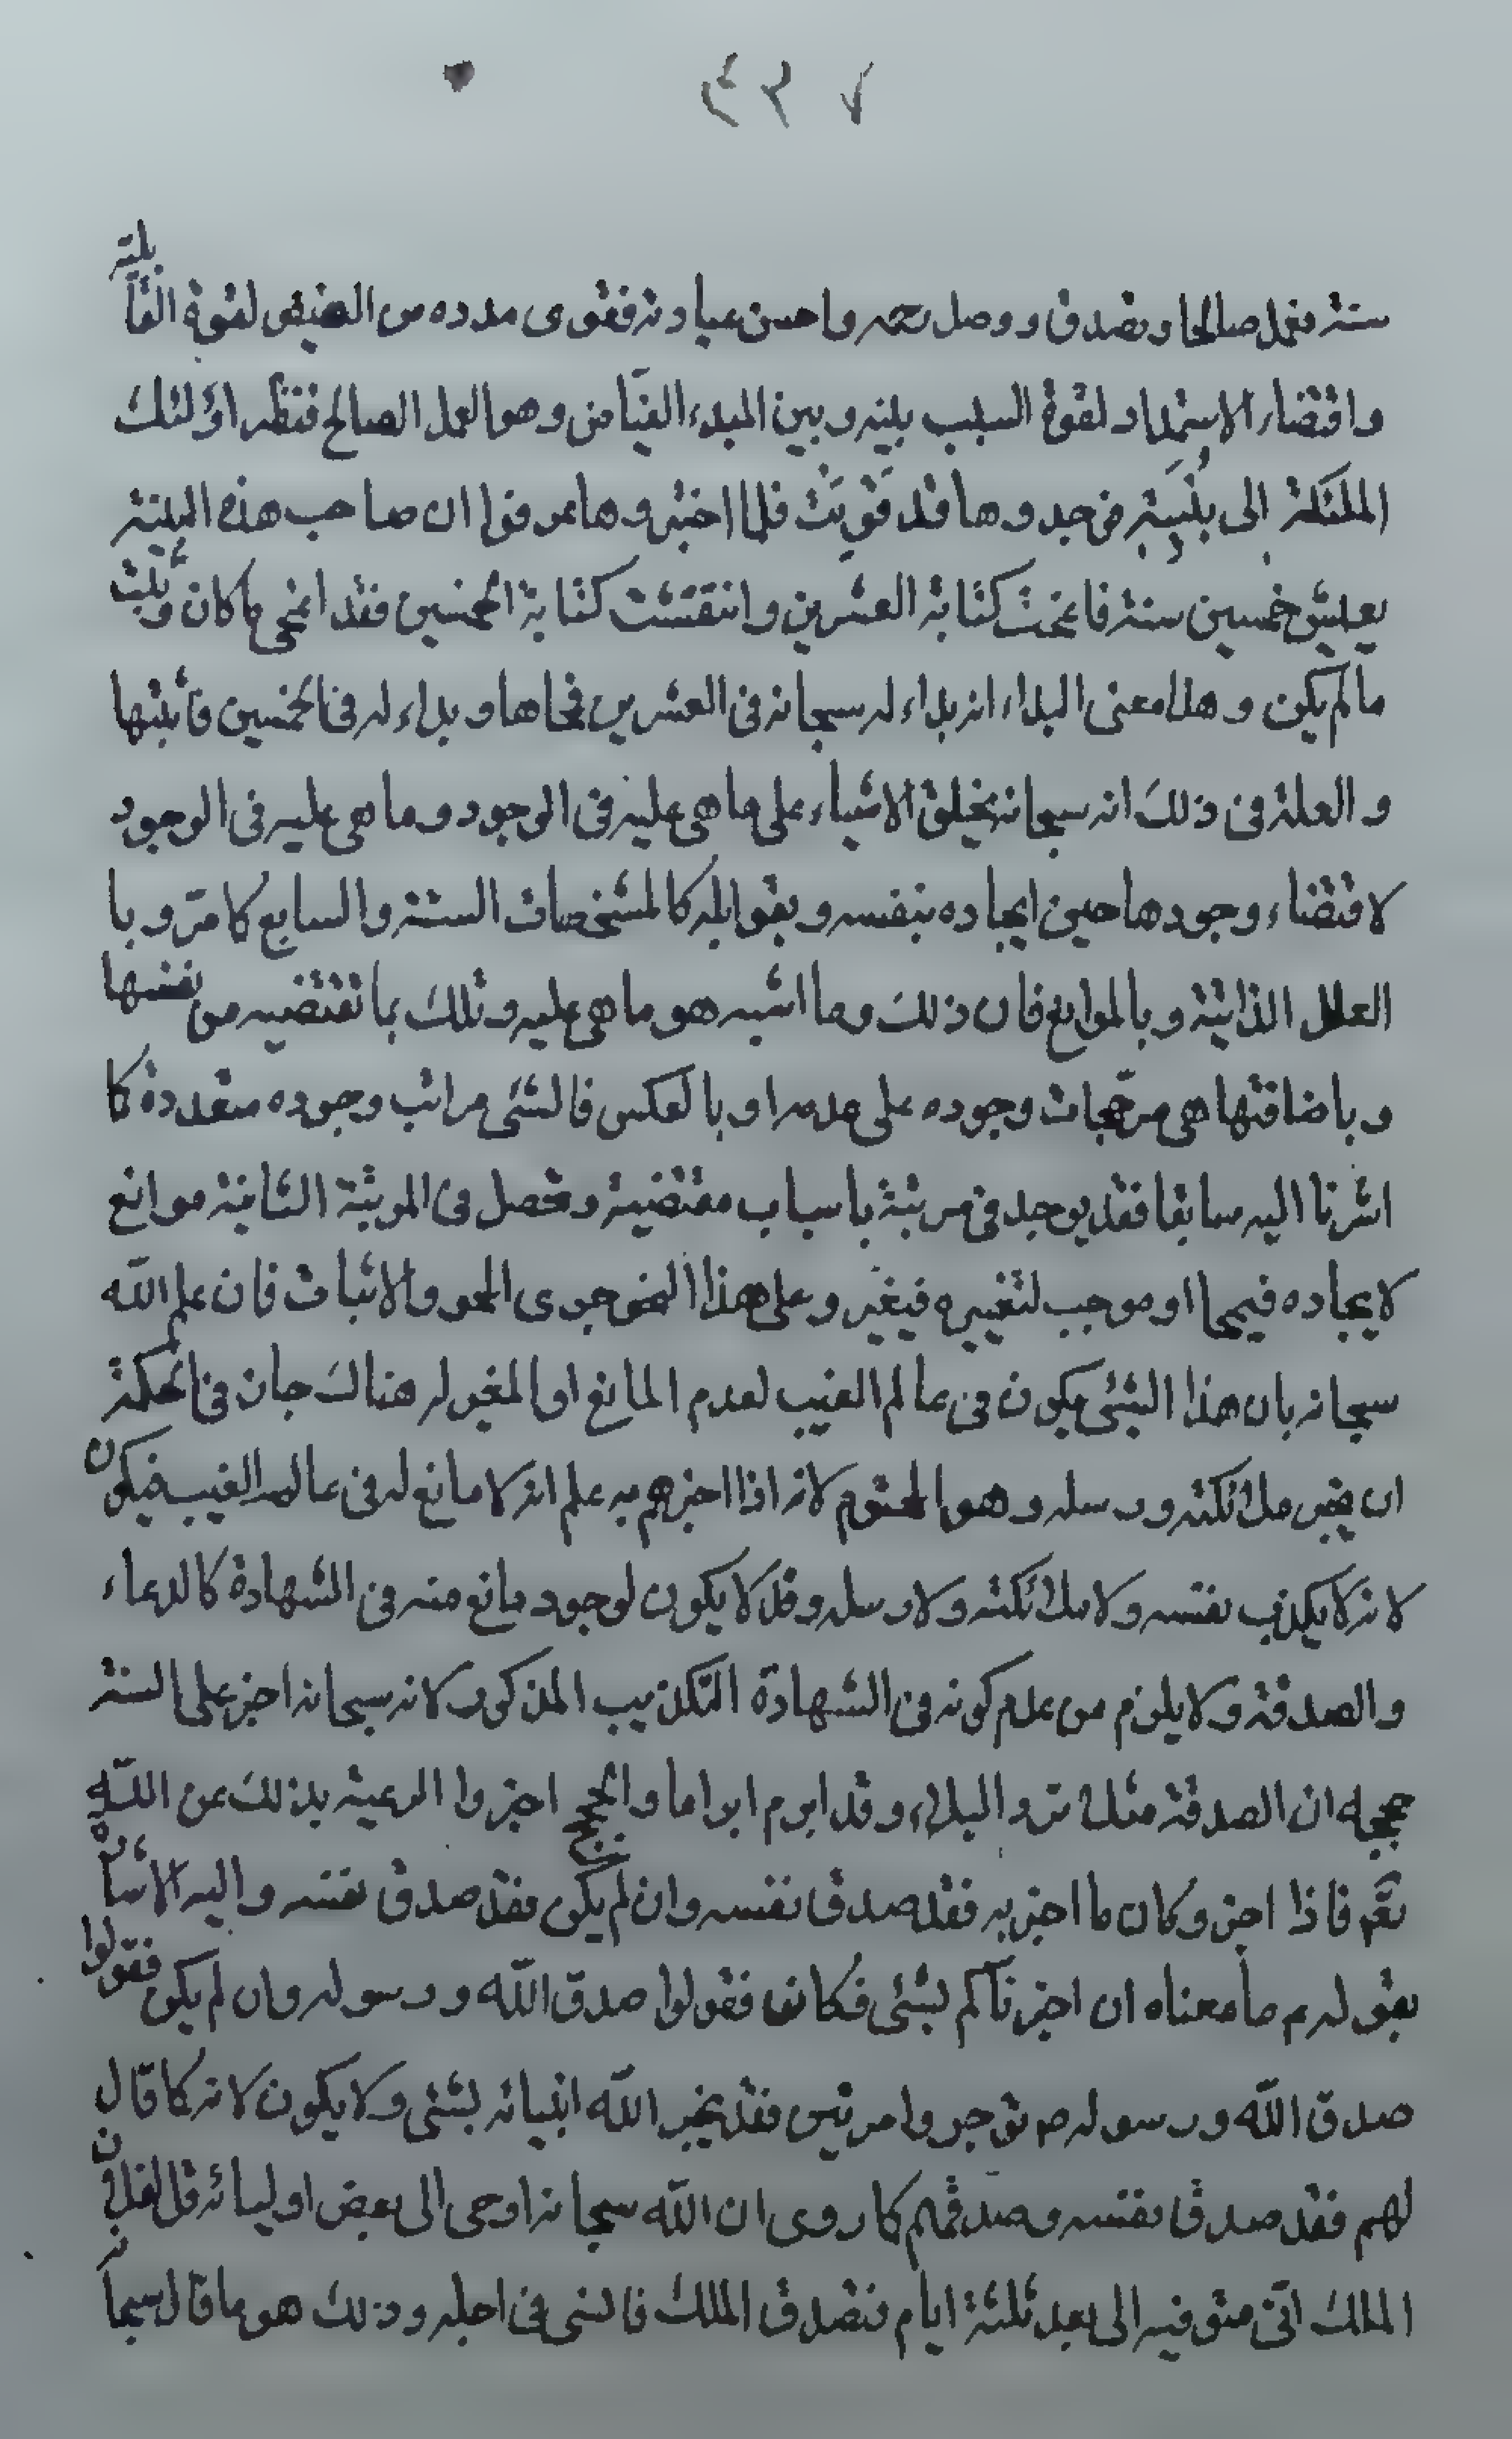 ٤٣٧
سنة فعمل صالحا وتصدق ووصل رحمه واحسن عبادته فقوى مدده من الفيض لقوة القابلية
واقتضاء الاستمداد لقوة السبب بينه وبين المبدء الفيّاض وهو العمل الصالح فنظر اولئك
الملئكة الى بُنْيَتِهِ فوجدوها قد قَوِيَتْ فلما اختبروها عرفوا ان صاحب هذه البنية
يعيش خمسين سنة فانمحت كتابة العشرين وانتقشت كتابة الخمسين فقد انمحى ما كان وثبت
مالم يكن وهذا معنى البداء انه بداء له سبحانه فى العشرين فمحاها وبداء له فى الخمسين فاثبتها
والعلة فى ذلك انه سبحانه يخلق الاشياء على ما هى عليه فى الوجود وما هى عليه فى الوجود
لاقتضاء وجودها حين ايجاده بنفسه وبقوابله كالمشخصات الستة والسابع كما مرّ وبا
العلل الذاتية وبالموانع فان ذلك وما اشبه هو ما هى عليه وتلك بما تقتضيه من نفسها
وباضافتها هى مرجّحات وجوده على عدمه او بالعكس فالشئ مراتب وجوده متعددة كما
اشرنا اليه سابقا فقد يوجد فى مرتبة باسباب مقتضية وتحصل فى المرتبة الثانية موانع
لايجاده فيمحا او موجب لتغييره فيغير وعلى هذا النحو جرى المحو والاثبات فان علم اللّه
سبحانه بان هذا الشئ يكون فى عالم الغيب لعدم المانع او المغير له هناك جاز فى الحكمة
ان يخبر ملائكته ورسله وهو المحتوم لانه اذا اخبرهم به علم انه لا مانع له فى عالم الغيب فيكون
لانه لا يكذب نفسه ولا ملائكته ولا رسله وقد لا يكون لوجود مانع منه فى الشهادة كالدعاء
والصدقة ولا يلزم من عدم كونه فى الشهادة التكذيب المذكور لانه سبحانه اخبر على السنة
حججه ان الصدقة مثلا ترد البلاء وقد ابرم ابراما والحجج اخبروا الرعية بذلك عن اللّه
تعَم فاذا اخبر وكان ما اخبر به فقد صدق نفسه وان لم يكن فقد صدق نفسه واليه الاشارة
بقوله م ما معناه ان اخبرناكم بشئ فكان فقولوا صدق اللّه ورسوله وان لم يكن فقولوا
صدق اللّه ورسوله ص توجروا مرتين فقد يخبر اللّه انبيائه بشئ ولا يكون لانه كما قال
لهم فقد صدق نفسه وصدقهم كما روى ان اللّه سبحانه اوحى الى بعض اوليائه قل لفلان
الملك انّى متوفيه الى بعد ثلثة ايام فتصدق الملك فانسى فى اجله وذلك هو ما قال سبحانه